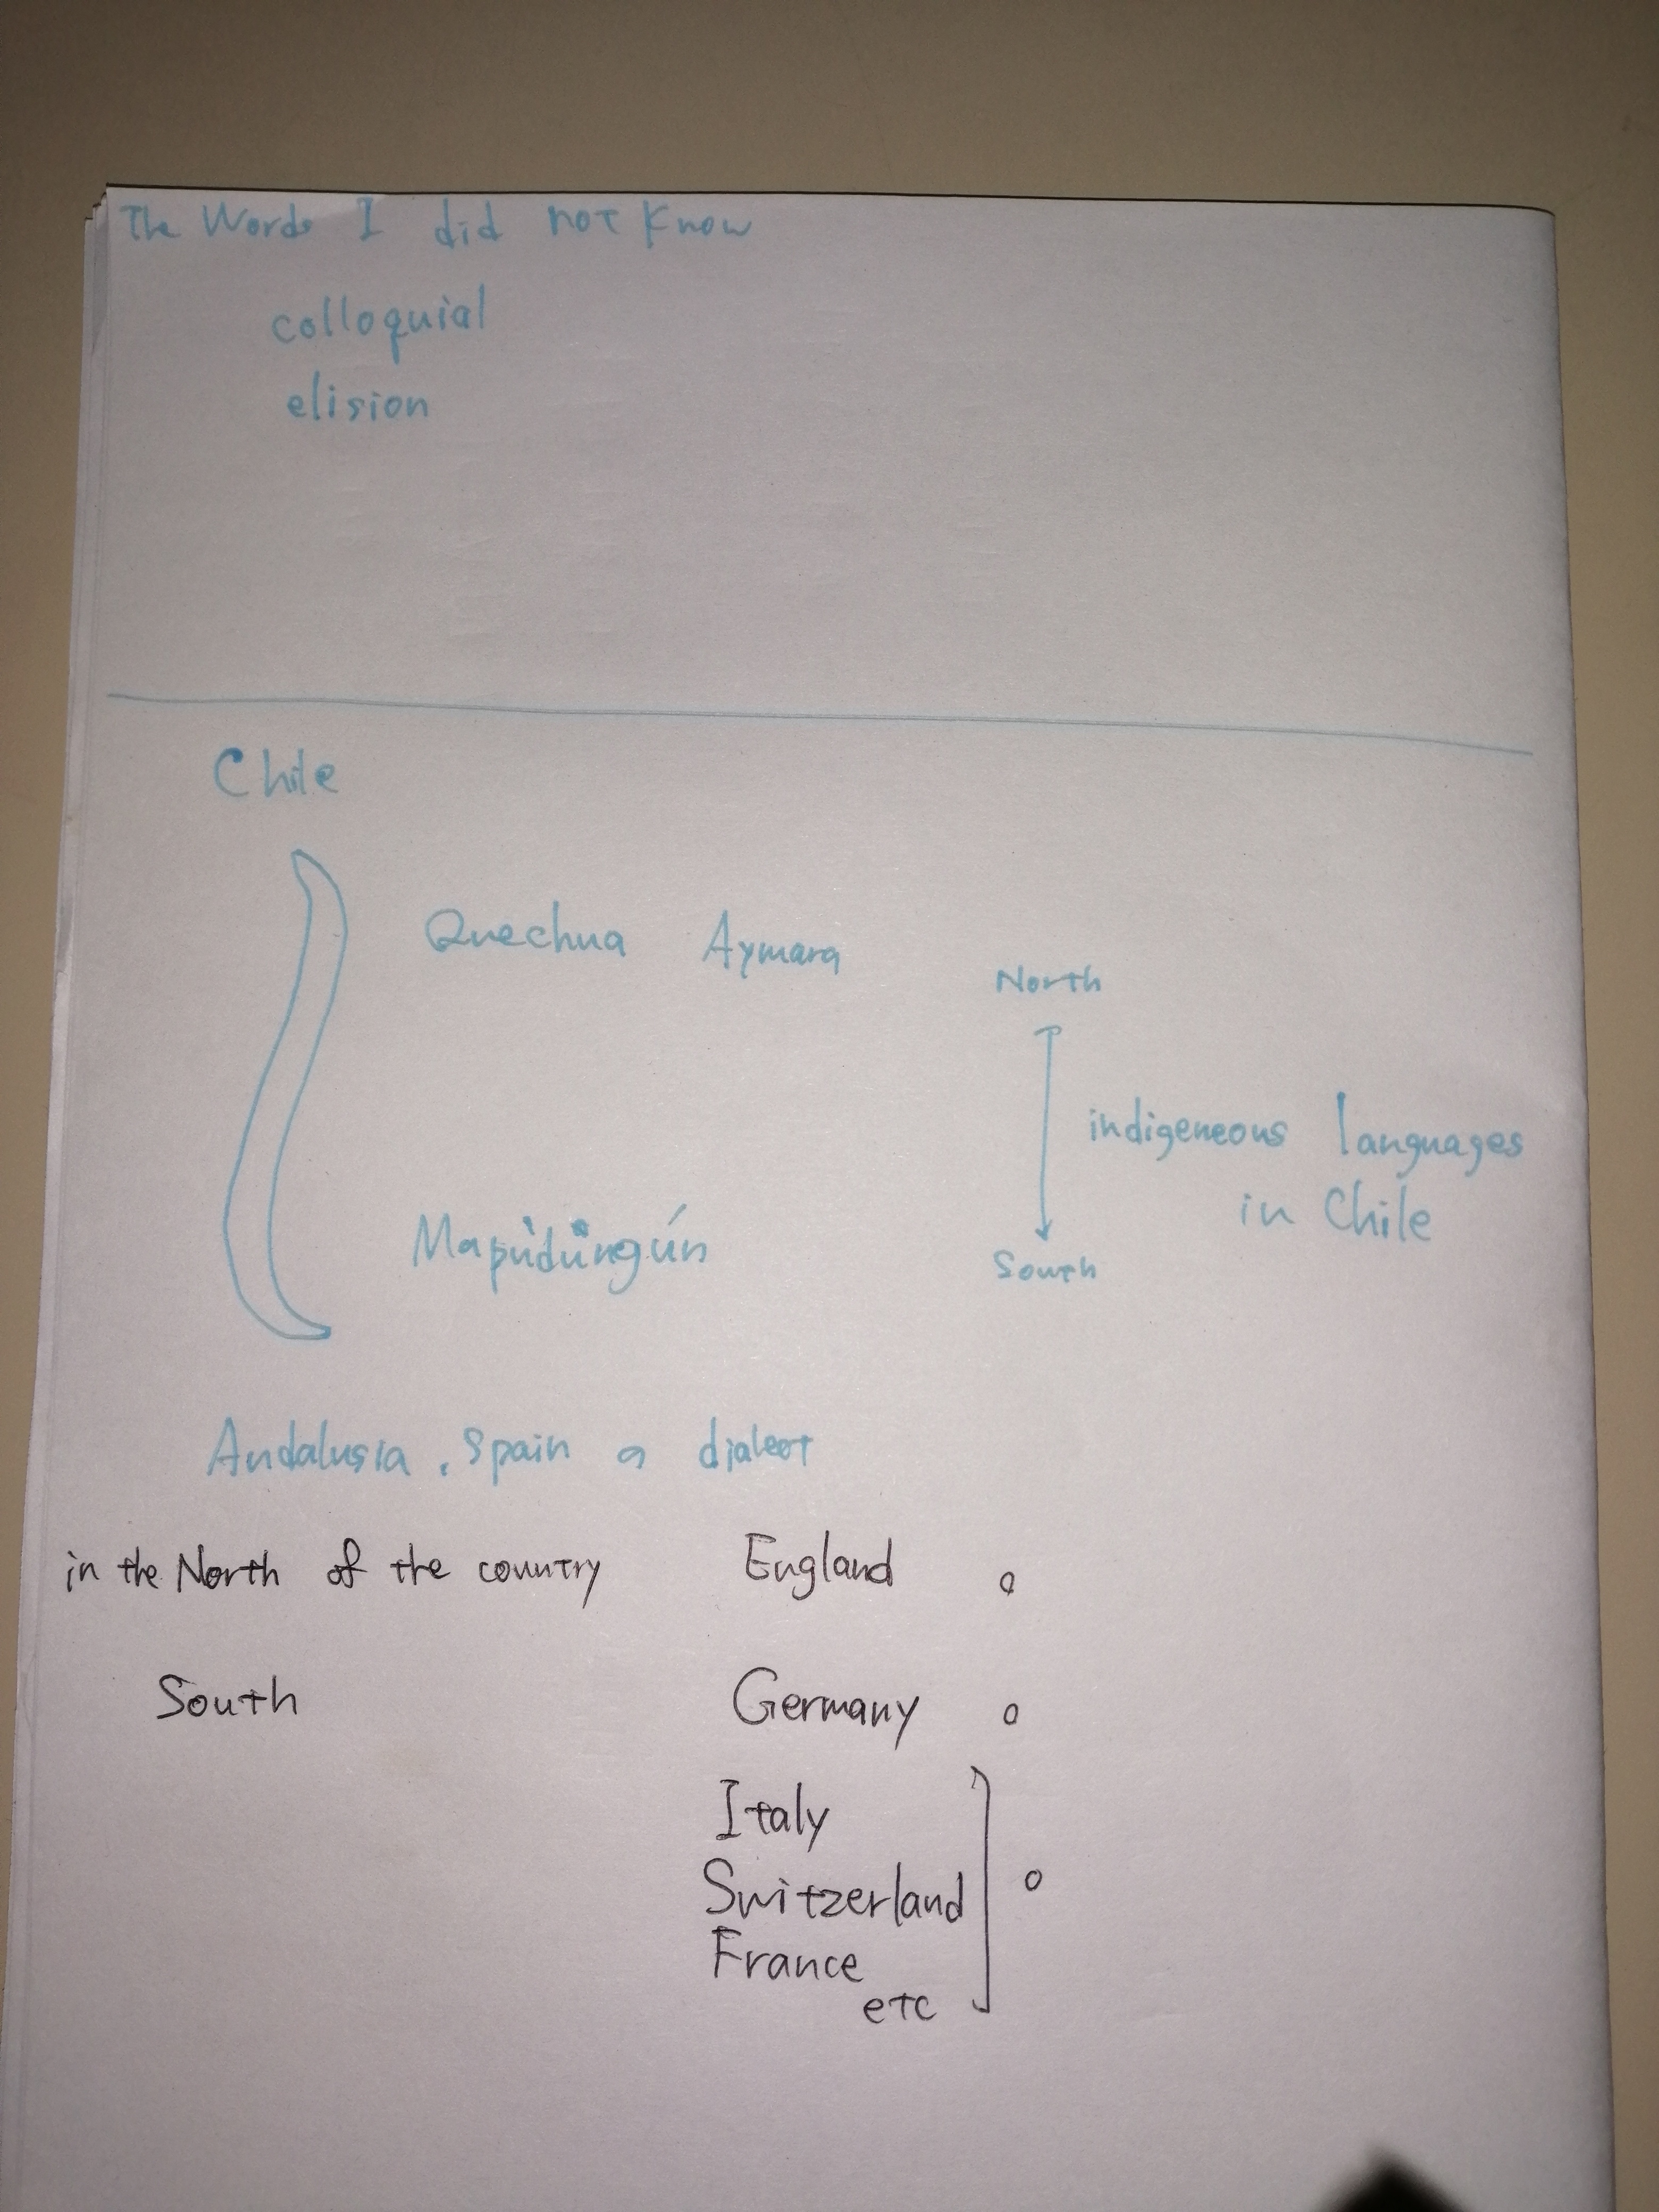 The Words I did not know
colloquial
elision
Chile
Quechua Aymara
North
indigeneous languages
in Chile
Mapudüngún
South
Andalusia, Spain a dialect
in the North of the country England o
South Germany o
Italy
Switzerland o
France
etc